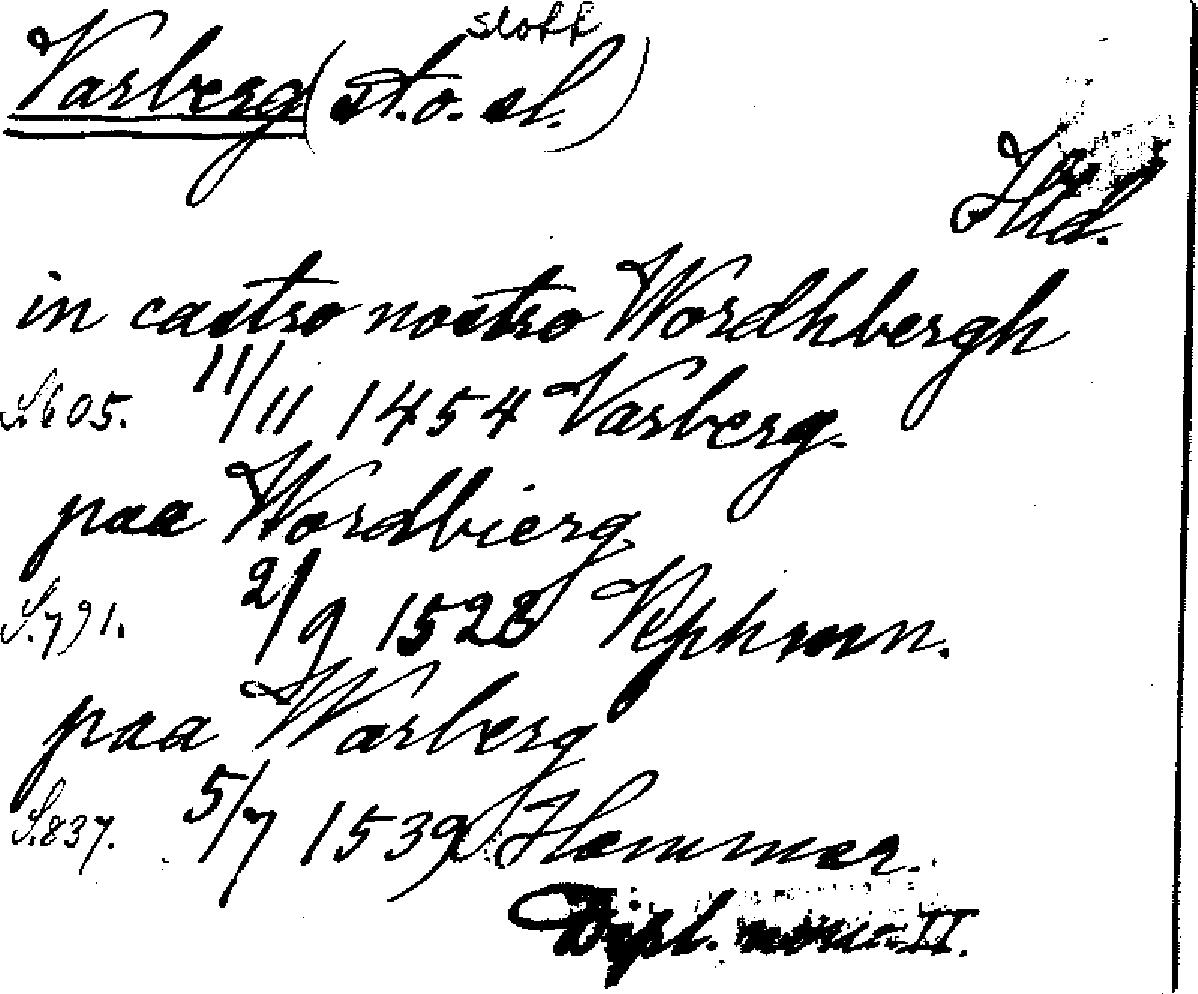 slott
Varberg (st. o. sl.)
Hld.
in castro nostro Wordhbergh
S. 605. 11/11 1454 Varberg.
paa Wordbierg
S. 791. 2/9 1528
paa Warberg
S. 837. 5/7 1539 Hemmer.
Dipl. II.